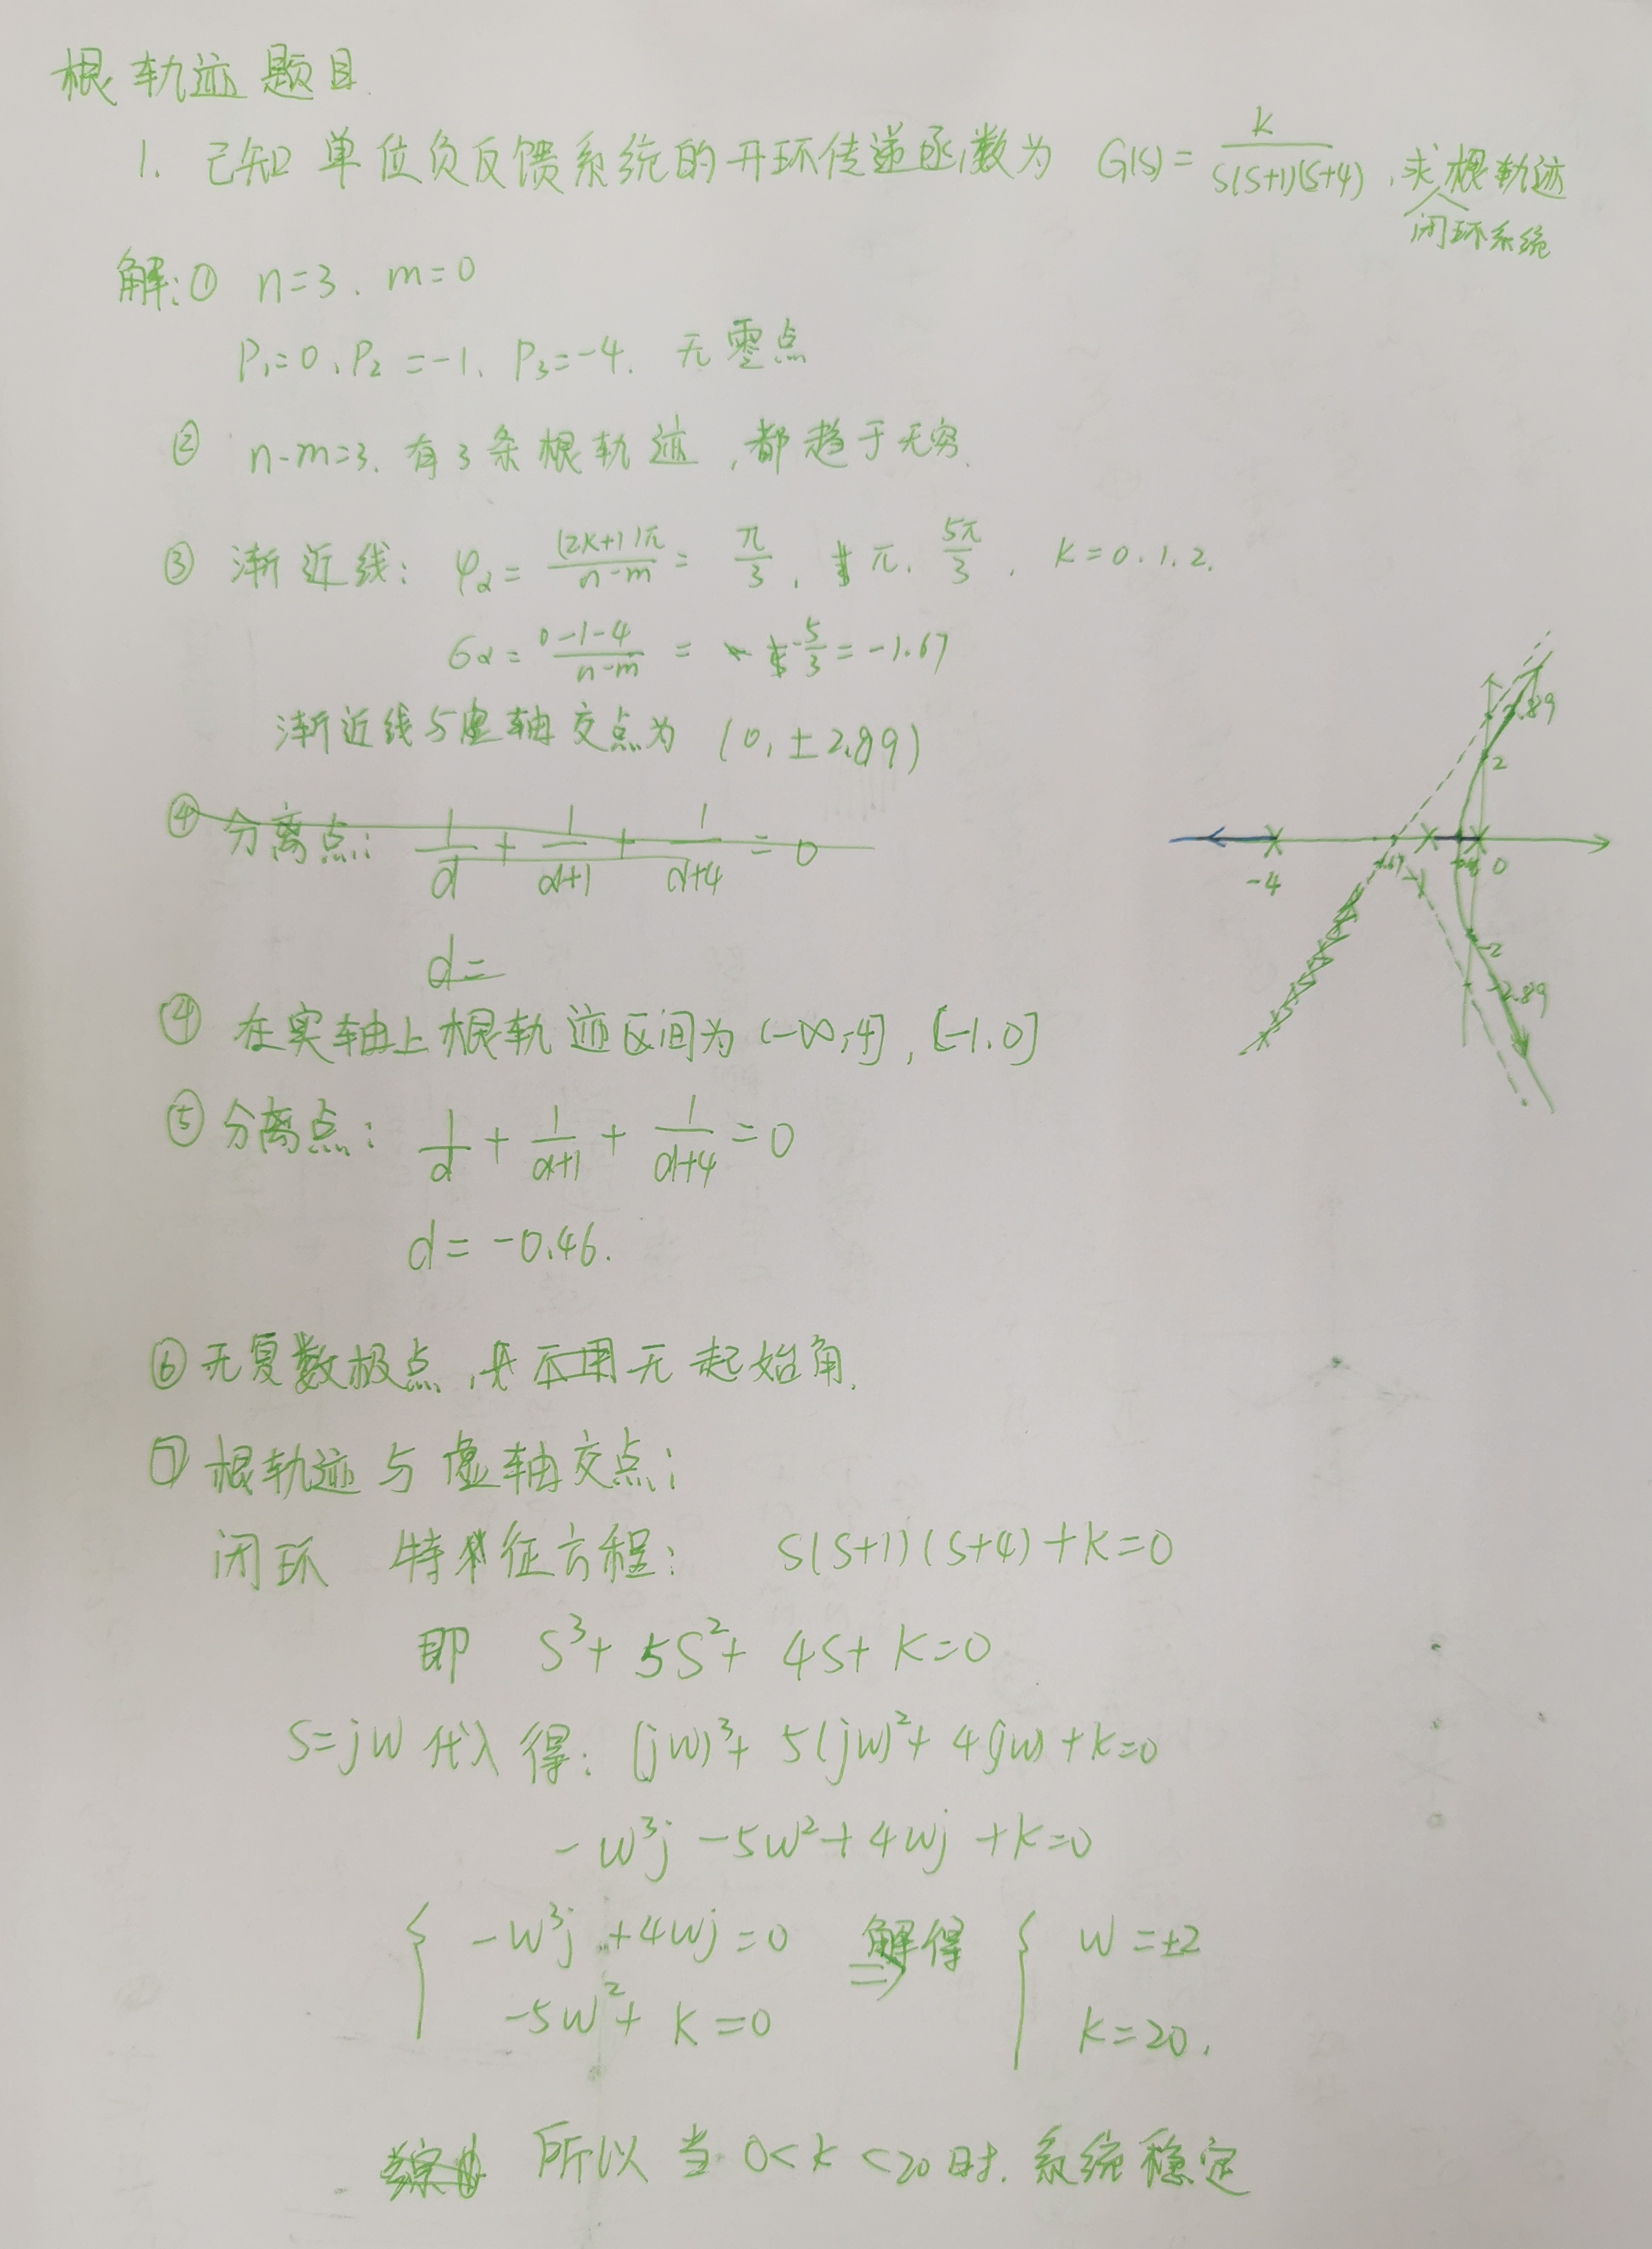 根轨迹题目
1. 已知单位负反馈系统的开环传递函数为 G(s)=K/(s(s+1)(s+4)),求闭环系统根轨迹
解:① n=3. m=0
P₁=0, P₂=-1, P₃=-4. 无零点
② n-m=3. 有3条根轨迹,都趋于无穷.
③ 渐近线: φα=(2K+1)π/(n-m)=π/3, π, 5π/3, K=0.1.2.
σα=(0-1-4)/(n-m)=-5/3=-1.67
渐近线与虚轴交点为 (0,±2.89)
④ 分离点: 1/d+1/(d+1)+1/(d+4)=0
d=
④ 在实轴上根轨迹区间为 (-∞,-4], [-1,0]
⑤ 分离点: 1/d+1/(d+1)+1/(d+4)=0
d=-0.46.
⑥ 无复数极点,不用无起始角.
⑦ 根轨迹与虚轴交点:
闭环 特征方程: s(s+1)(s+4)+K=0
即 s³+5s²+4s+K=0
s=jw 代入得: (jw)³+5(jw)²+4(jw)+K=0
-w³j-5w²+4wj+K=0
{ -w³j+4wj=0 ⇒解得 { w=±2
-5w²+K=0 K=20.
所以当 0<K<20时.系统稳定
2.89
2
-4
-1.67
-1
0
-2
-2.89